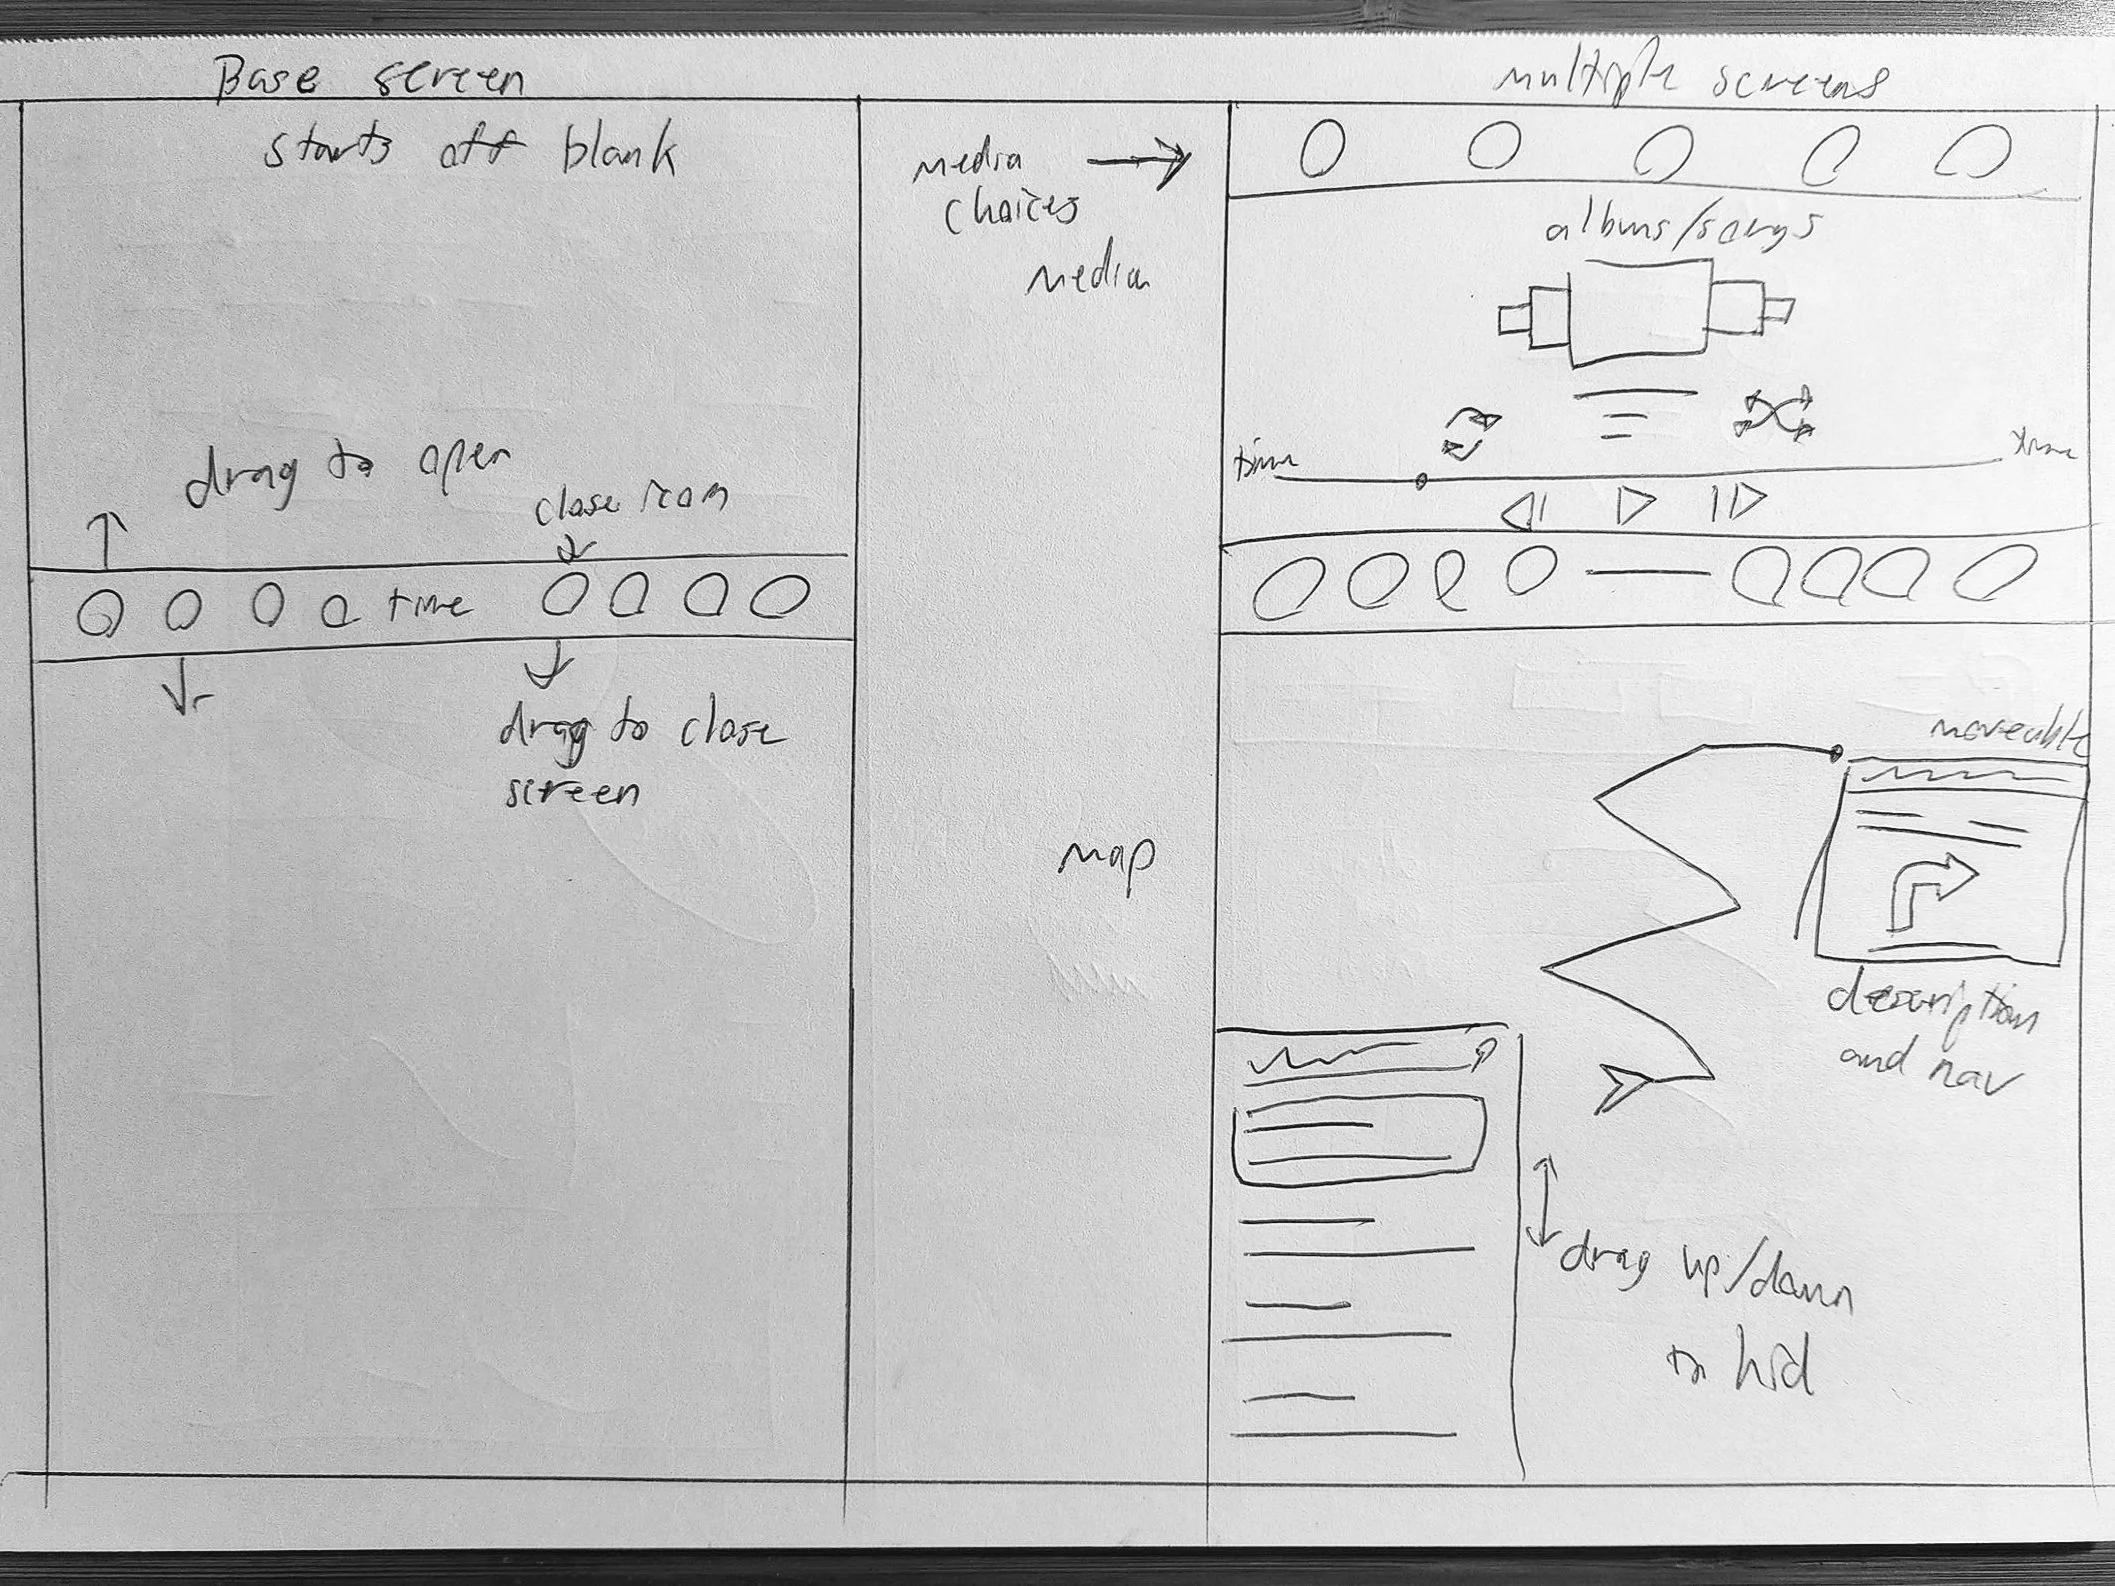 Base screen
starts off blank
drag to open
close icon
time
drag to close
screen
media
choices
media
map
multiple screens
albums/songs
time
time
moveable
description
and nav
drag up/down
to hid